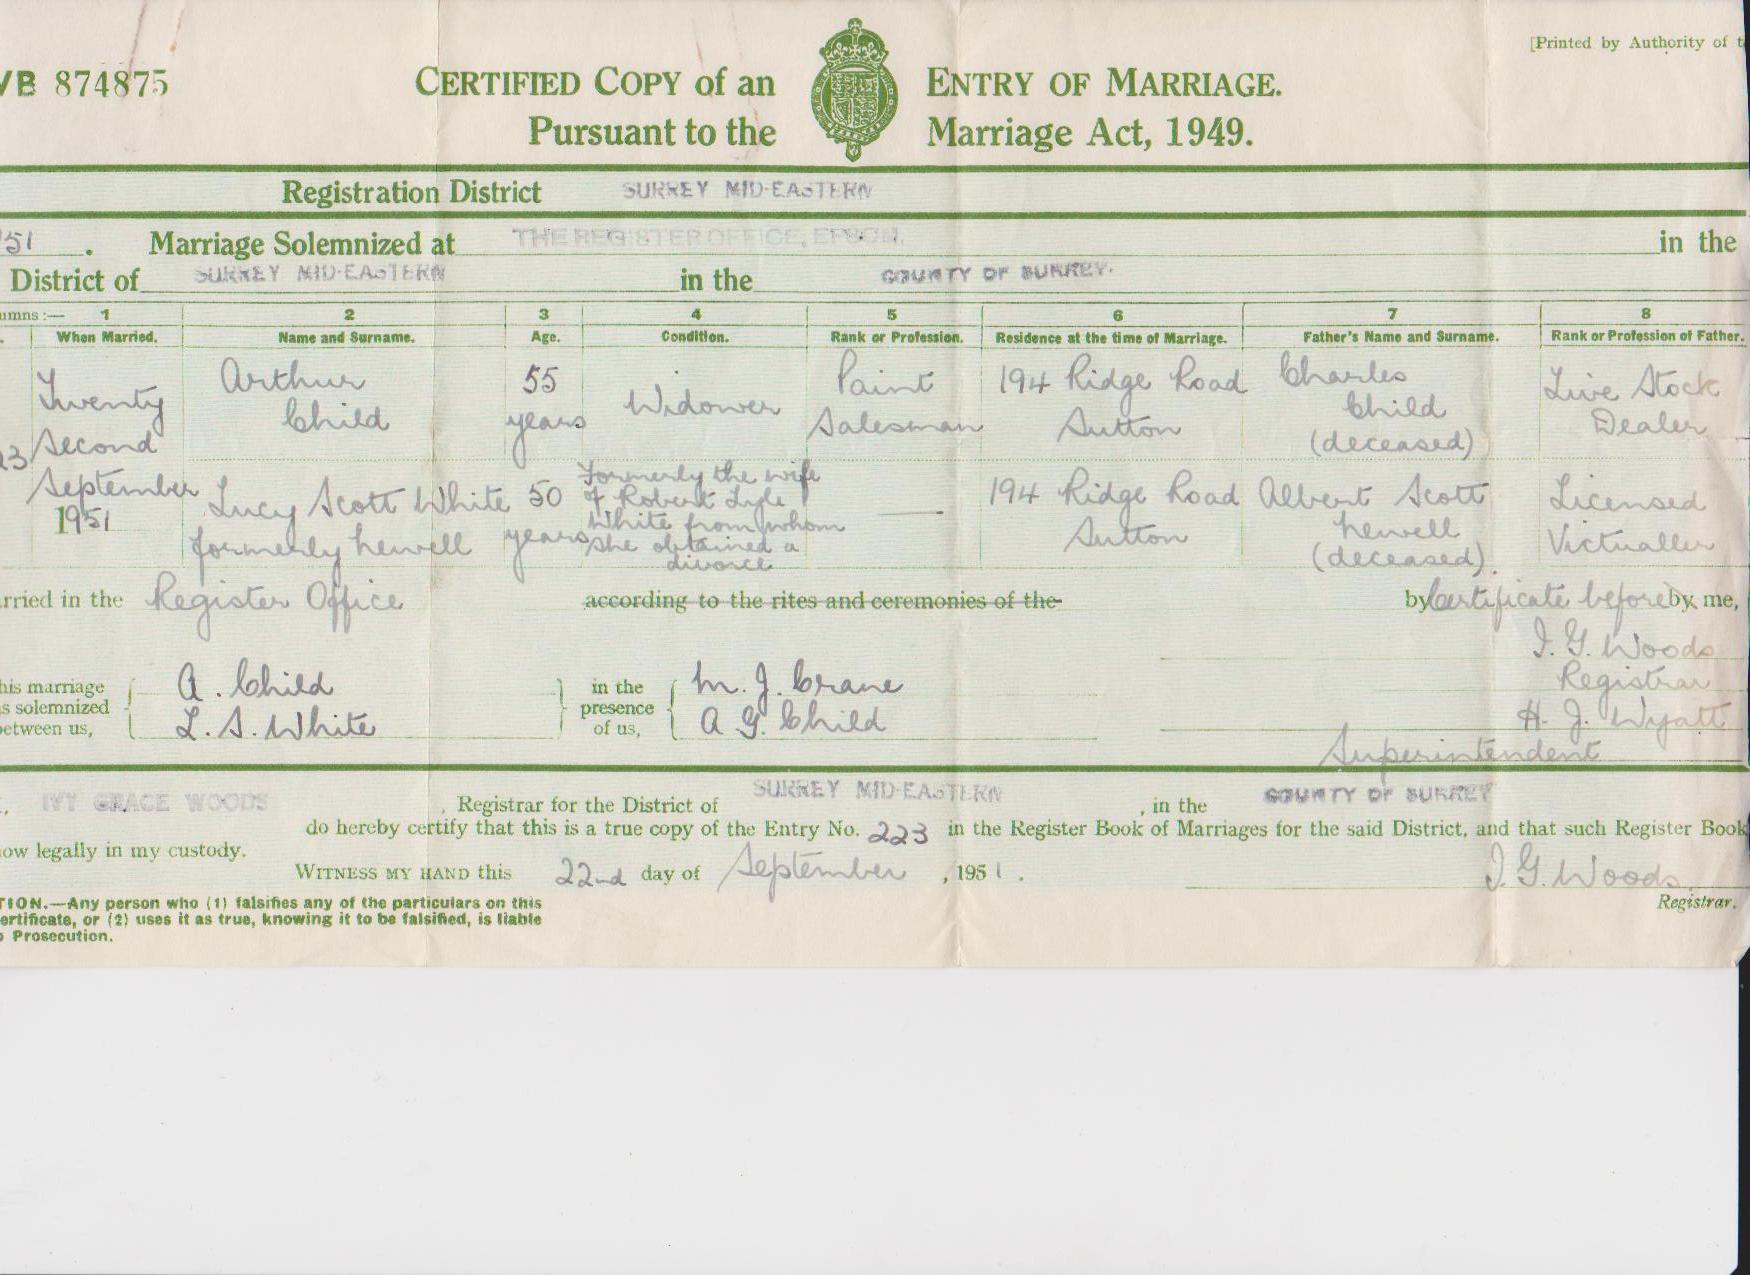 [Printed by Authority of t
VB 874875
CERTIFIED COPY of an ENTRY OF MARRIAGE.
Pursuant to the Marriage Act, 1949.
Registration District SURREY MID-EASTERN
51. Marriage Solemnized at THE REGISTER OFFICE, EPSOM. in the
District of SURREY MID-EASTERN in the COUNTY OF SURREY.
umns:— 1 2 3 4 5 6 7 8
When Married. Name and Surname. Age. Condition. Rank or Profession. Residence at the time of Marriage. Father's Name and Surname. Rank or Profession of Father.
Twenty Second September 1951
23
Arthur Child 55 years Widower Paint Salesman 194 Ridge Road Sutton Charles Child (deceased) Live Stock Dealer
Lucy Scott White formerly Hewell 50 years Formerly the wife of Robert Lyle White from whom she obtained a divorce — 194 Ridge Road Sutton Albert Scott Hewell (deceased) Licensed Victualler
rried in the Register Office according to the rites and ceremonies of the by Certificate before by me,
his marriage
s solemnized
etween us,
A. Child
L. S. White
in the
presence
of us,
M. J. Crane
A G. Child
I. G. Woods
Registrar
H. J. Wyatt
Superintendent
IVY GRACE WOODS, Registrar for the District of SURREY MID-EASTERN, in the COUNTY OF SURREY
do hereby certify that this is a true copy of the Entry No. 223 in the Register Book of Marriages for the said District, and that such Register Book
ow legally in my custody.
WITNESS MY HAND this 22nd day of September, 1951.
I. G. Woods
Registrar.
TION.—Any person who (1) falsifies any of the particulars on this
ertificate, or (2) uses it as true, knowing it to be falsified, is liable
o Prosecution.